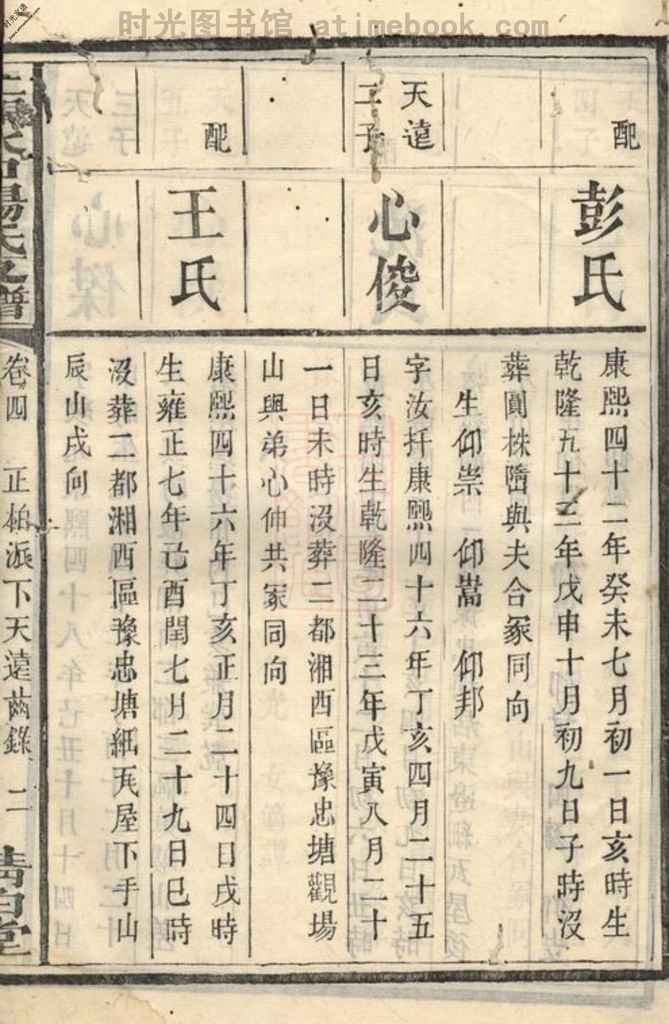 时光图书馆 atimebook.com
配
彭氏
康熙四十二年癸未七月初一日亥時生
乾隆五十三年戊申十月初九日子時沒
葬圓株墦與夫合冢同向
生仰崇 仰嵩 仰邦
天遠
二子
心俊
字汝扦康熙四十六年丁亥四月二十五
日亥時生乾隆二十三年戊寅八月二十
一日未時沒葬二都湘西區豫忠塘觀場
山與弟心仲共冢同向
配
王氏
康熙四十六年丁亥正月二十四日戌時
生雍正七年己酉閏七月二十九日巳時
沒葬二都湘西區豫忠塘紙瓦屋下手山
辰山戌向
楊氏之譜
卷四 正柏派下天遠齒錄 二 清白堂